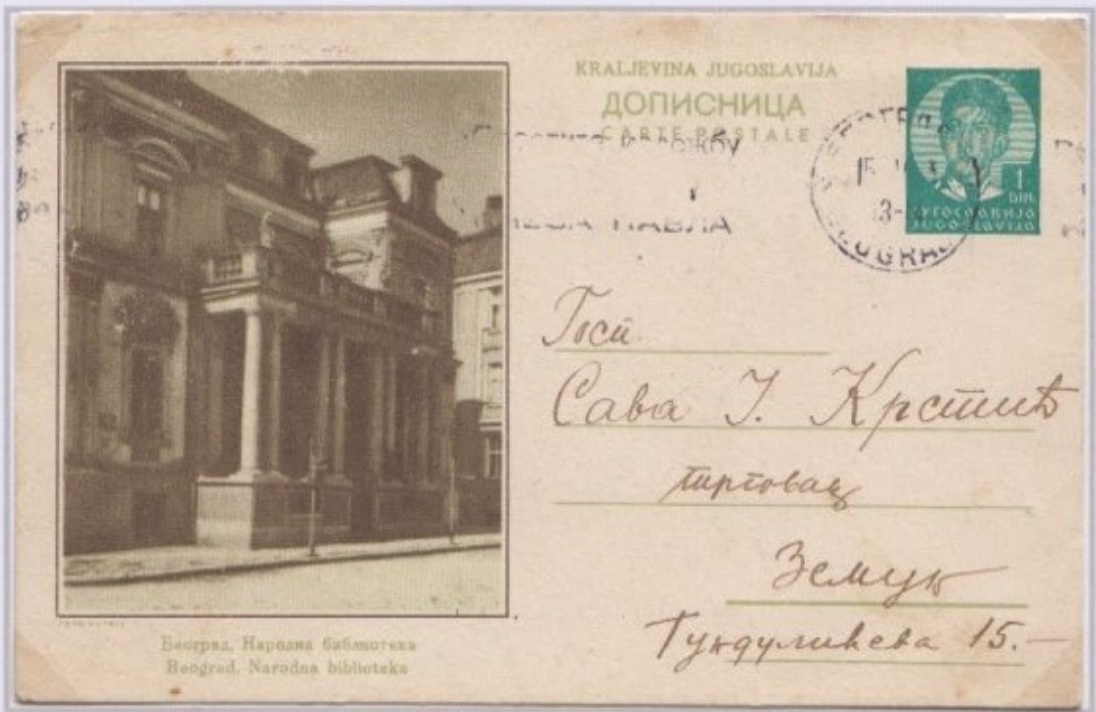 KRALJEVINA JUGOSLAVIJA
ДОПИСНИЦА
CARTE POSTALE
1
ДИН.
ЈУГОСЛАВИЈА
JUGOSLAVIJA
БЕОГРАД
15
BEOGRAD
ПАВЛА
Госп
Сава Ј. Крстић
трговац
Земун
Гундулићева 15.-
Београд, Народна библиотека
Beograd, Narodna biblioteka